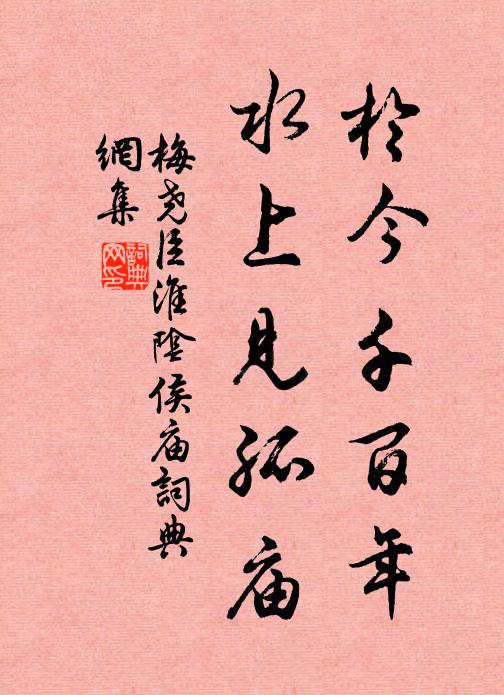 於今千百年
水上見孤庙
梅尧臣淮陰侯庙詞典
網集
詞典
网印